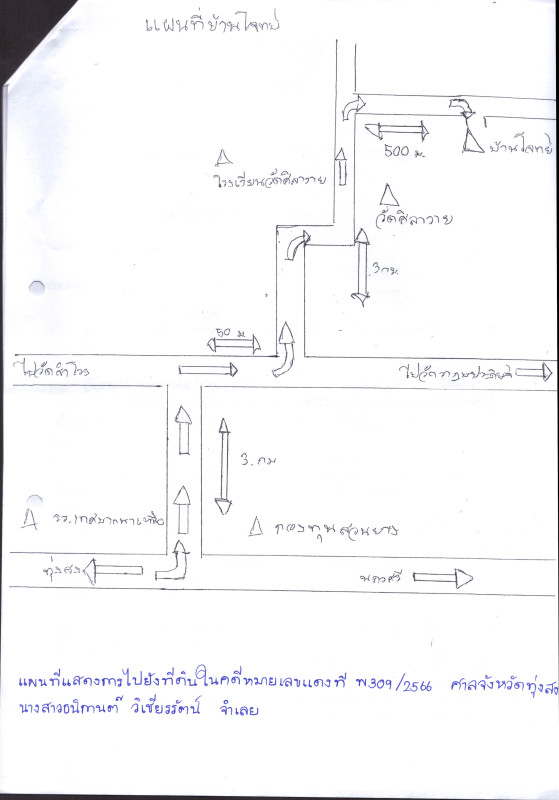 แผนที่บ้านโจทย์
500 ม.
บ้านโจทย์
โรงเรียนวัดศิลาราย
วัดศิลาราย
3 กม.
50 ม
ไปวัดสำโรง
ไปวัด
3. กม
กองทุนสวนยาง
ทุ่งสง
นครศรี
แผนที่แสดงการไปยังที่ดินในคดีหมายเลขแดงที่ พ309/2566 ศาลจังหวัดทุ่งสง
นางสาวธนิกานต์ วิเชียรรัตน์ จำเลย